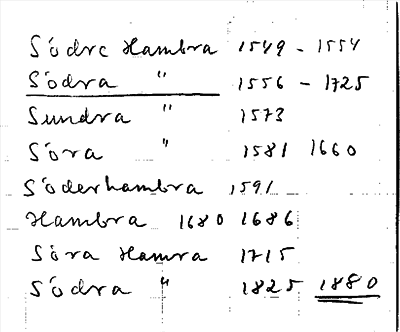 Södre Hambra 1549 - 1554
Södra " 1556 - 1725
Sundra " 1573
Söra " 1581 1660
Söderhambra 1591
Hambra 1680 1686
Söra Hamra 1715
Södra " 1825 1880